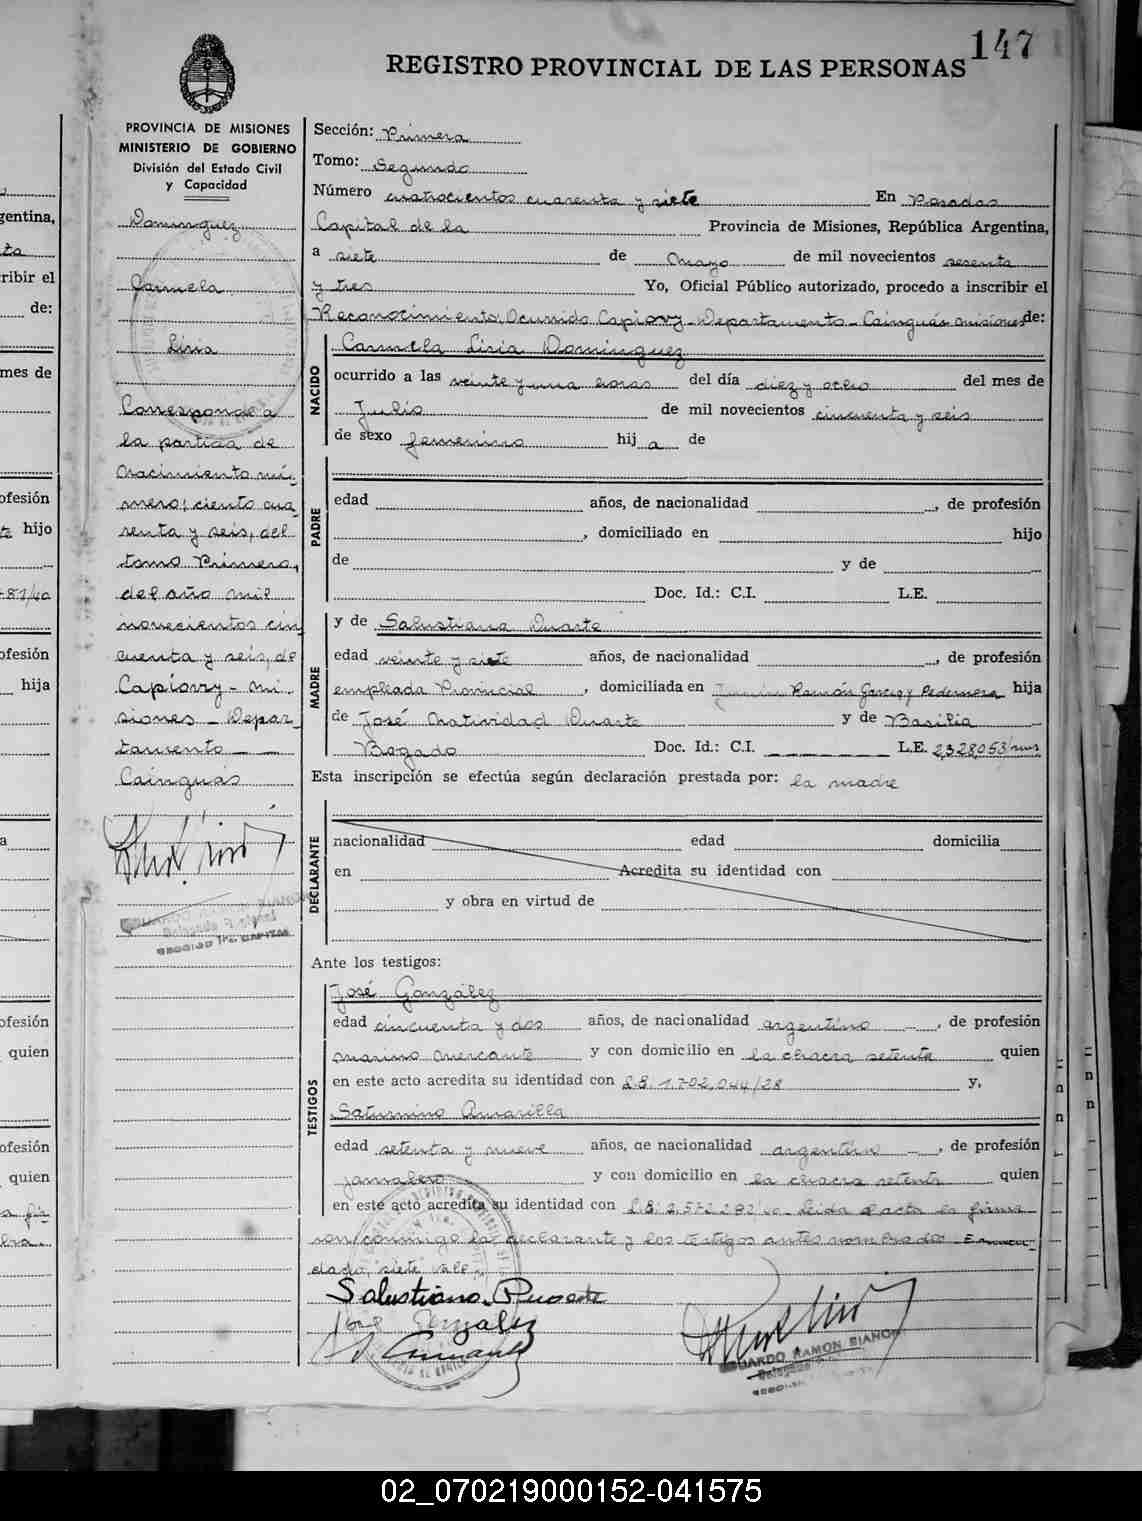 147
REGISTRO PROVINCIAL DE LAS PERSONAS
PROVINCIA DE MISIONES
MINISTERIO DE GOBIERNO
División del Estado Civil
y Capacidad
Dominguez
Carmela
Liria
Corresponde a
la partida de
Nacimiento nú-
mero; ciento cua-
renta y seis, del
tomo Primero,
del año mil
novecientos cin
cuenta y seis, de
Capiovy - Mi
siones - Depar-
tamento - -
Cainguás
Sección: Primera
Tomo: Segundo
Número cuatrocientos cuarenta y siete En Posadas
Capital de la Provincia de Misiones, República Argentina,
a siete de Mayo de mil novecientos sesenta
y tres Yo, Oficial Público autorizado, procedo a inscribir el
Reconocimiento, Ocurrido Capiovy - Departamento - Cainguás Misiones de:
NACIDO
Carmela Liria Dominguez
ocurrido a las veinte y una horas del día diez y ocho del mes de
Julio de mil novecientos cincuenta y seis
de sexo femenino hij a de
PADRE
edad años, de nacionalidad , de profesión
, domiciliado en hijo
de y de
Doc. Id.: C.I. L.E.
MADRE
y de Salustiana Duarte
edad veinte y siete años, de nacionalidad , de profesión
empleada Provincial , domiciliada en Ramón Garcia y Pedernera hija
de José Natividad Duarte y de Basilia
Bogado Doc. Id.: C.I. L.E. 2,328,053
Esta inscripción se efectúa según declaración prestada por: la madre
DECLARANTE
nacionalidad edad domicilia
en Acredita su identidad con
y obra en virtud de
Ante los testigos:
TESTIGOS
José González
edad cincuenta y dos años, de nacionalidad argentino , de profesión
marino mercante y con domicilio en la chacra setenta quien
en este acto acredita su identidad con L.E. 1.702,044/28 y,
Saturnino Amarilla
edad setenta y nueve años, de nacionalidad argentino , de profesión
jornalero y con domicilio en la chacra setenta quien
en este acto acredita su identidad con Leida el acta la firma
ron conmigo la declarante y los testigos antes nombrados Enmen
dado, "siete" vale
Salustiana Duarte
EDUARDO RAMON BIANCHI
02_070219000152-041575